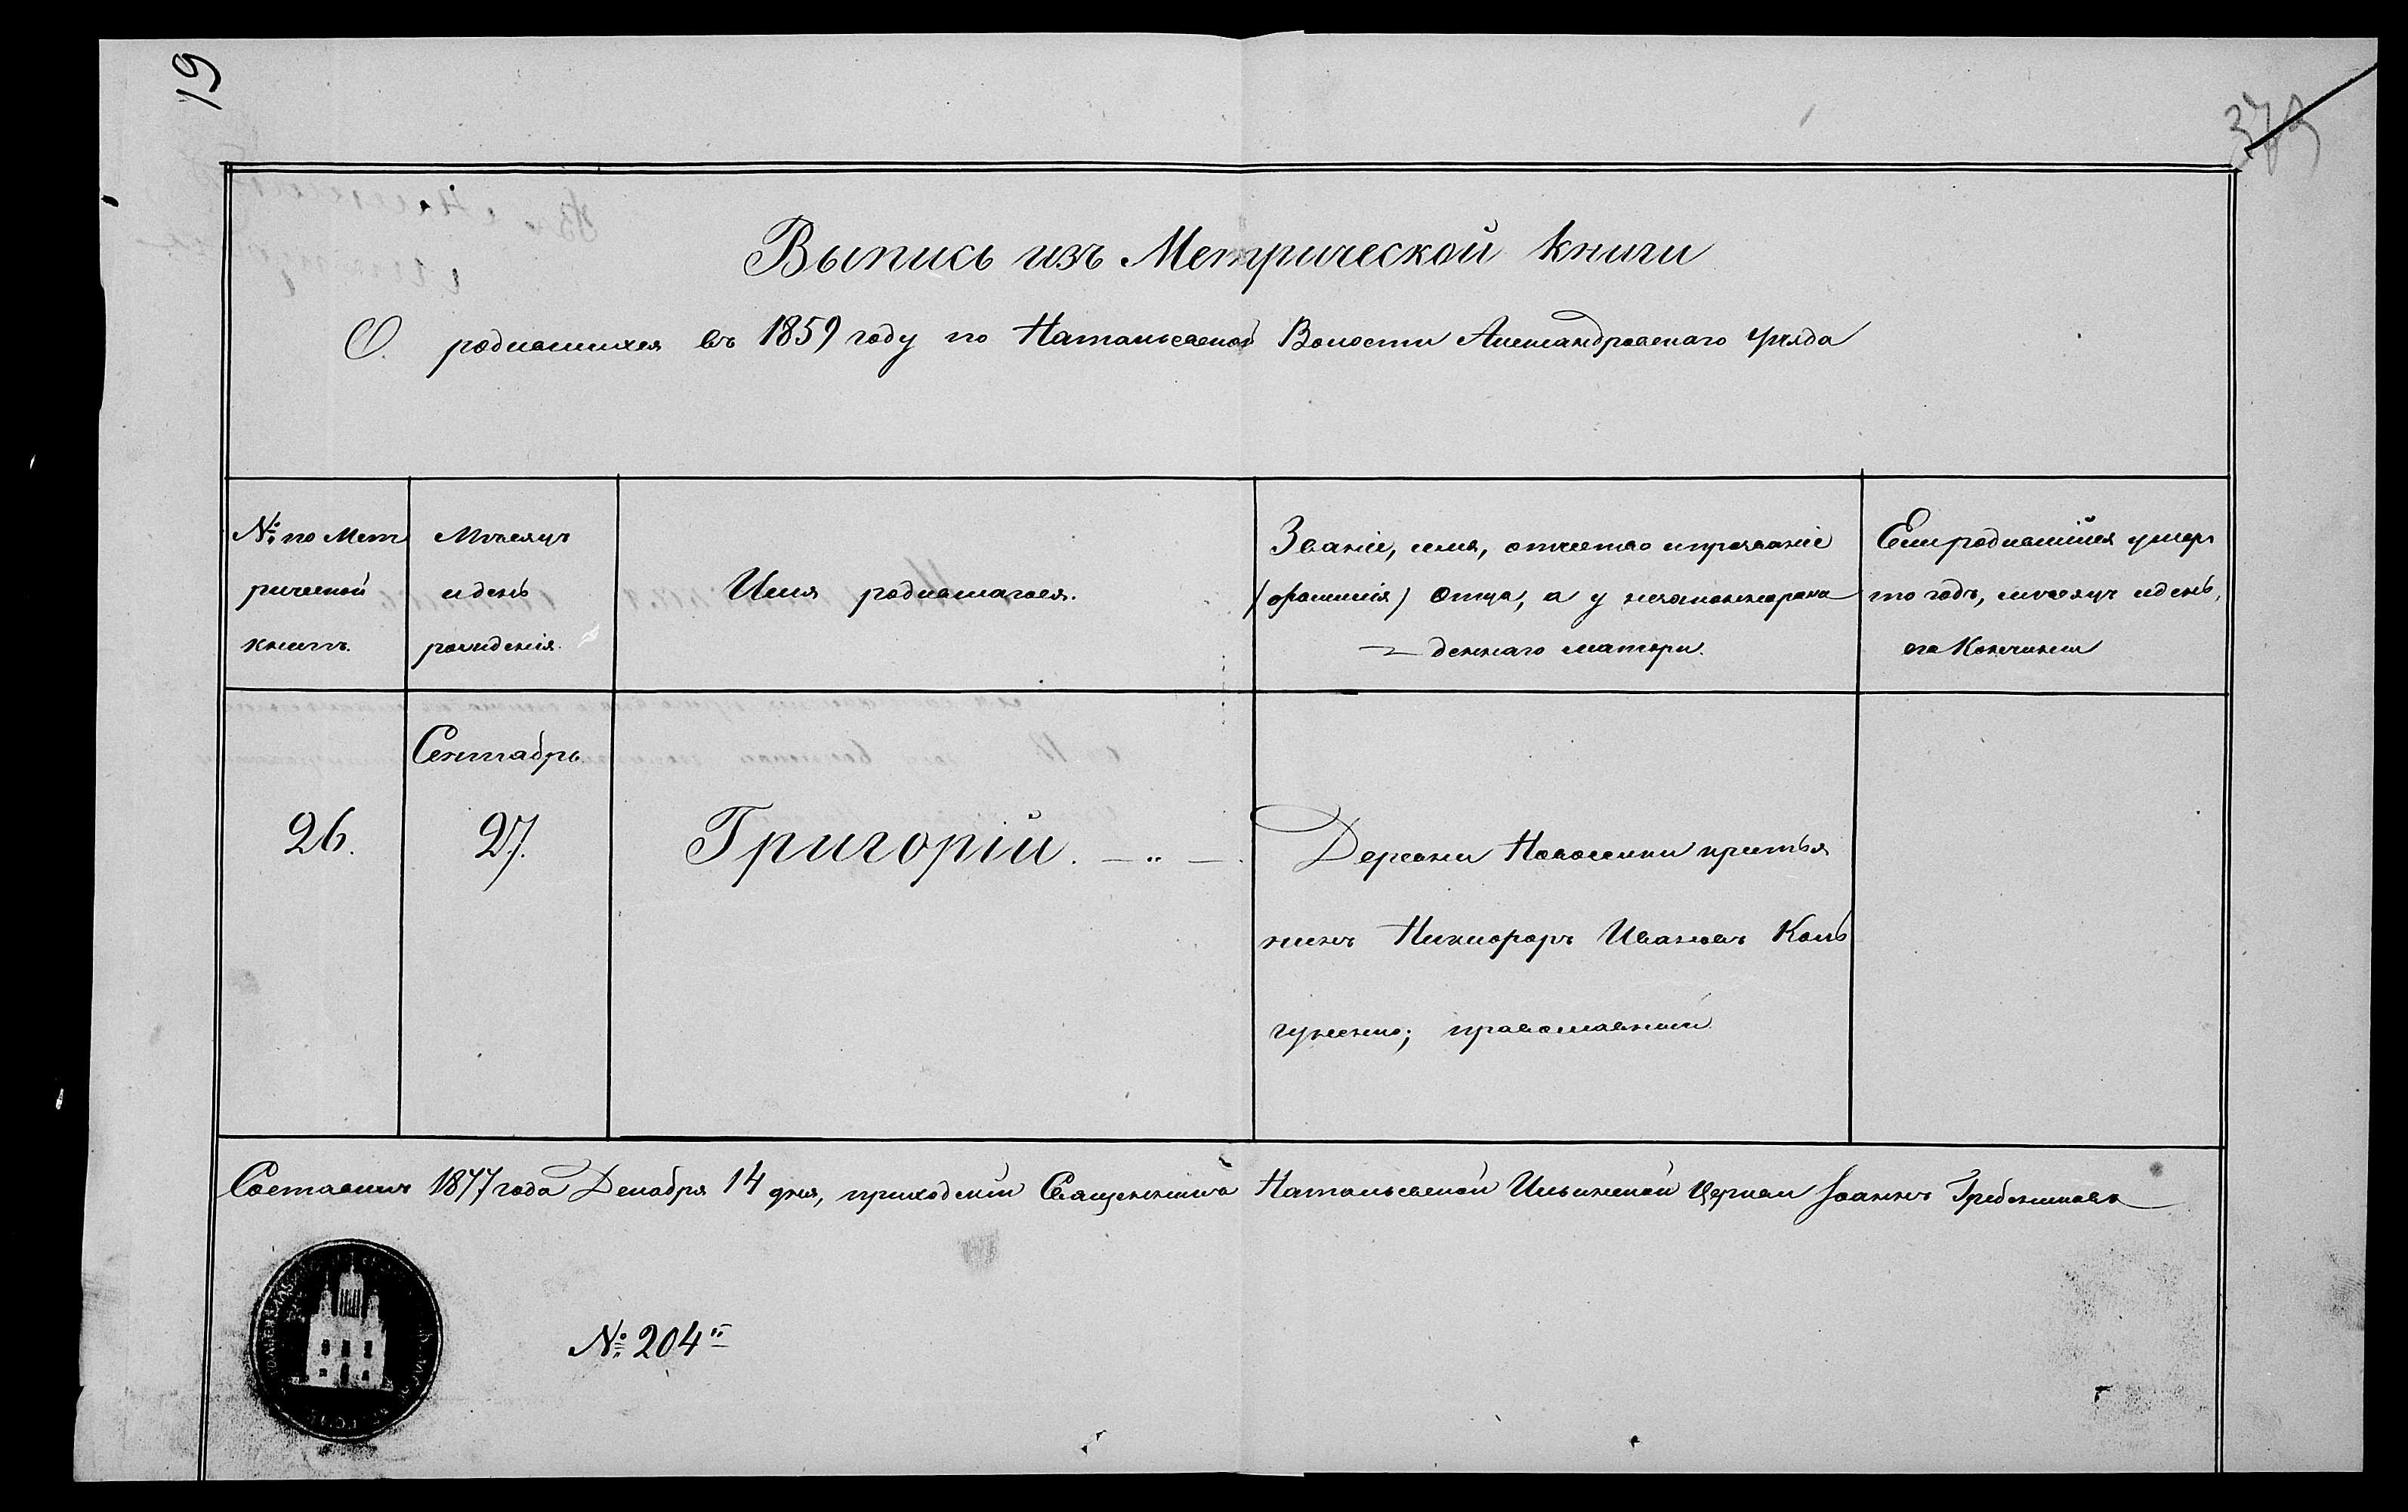 19
379
Выпись изъ Метрической книги
О родившихся въ 1859 году по Натальевской Волости Александровскаго уѣзда
№ по Мет
рической
книгѣ.
Мѣсяцъ
и день
рожденія.
Имя родившагося.
Званіе, имя, отчество и прозваніе
(фамилія) Отца, а у незаконнорож
денного матери.
Если родившійся умеръ
то годъ, мѣсяцъ и день,
его Кончины
26.
Сентябрь
27.
Григорій.
Деревни Новоселки кресть
янинъ Никифоръ Ивановъ Коль
православный
Составилъ 1877 года Декабря 14 дня, приходскій Священникъ Натальевской Ильинской Церкви Іоаннъ Гребенниковъ
№ 204